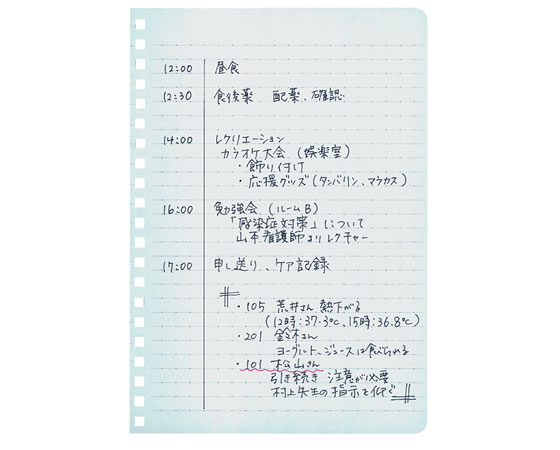 12:00 昼食
12:30 食後薬 配薬、確認
14:00 レクリエーション
カラオケ大会 (娯楽室)
・飾り付け
・応援グッズ(タンバリン、マラカス)
16:00 勉強会 (ルームB)
「感染症対策」について
山本看護師よりレクチャー
17:00 申し送り、ケア記録
・105 荒井さん 熱下がる
(12時:37.3℃、15時:36.8℃)
・201 鈴木さん
ヨーグルト、ジュースは食べられる
・101 松山さん
引き続き 注意が必要
村上先生の指示を仰ぐ